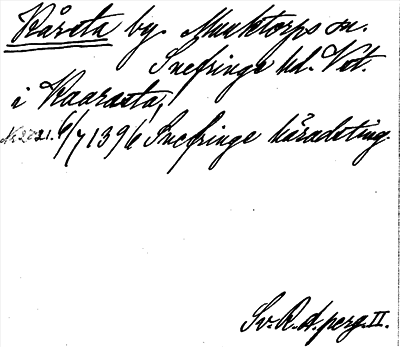 Kårsta by. Munktorps sn.
Snefringe hd. Vst.
i Kaarasta,
No 2721. 6/7 1396 Snefringe häradsting.
Sv. R. d. perg. II.